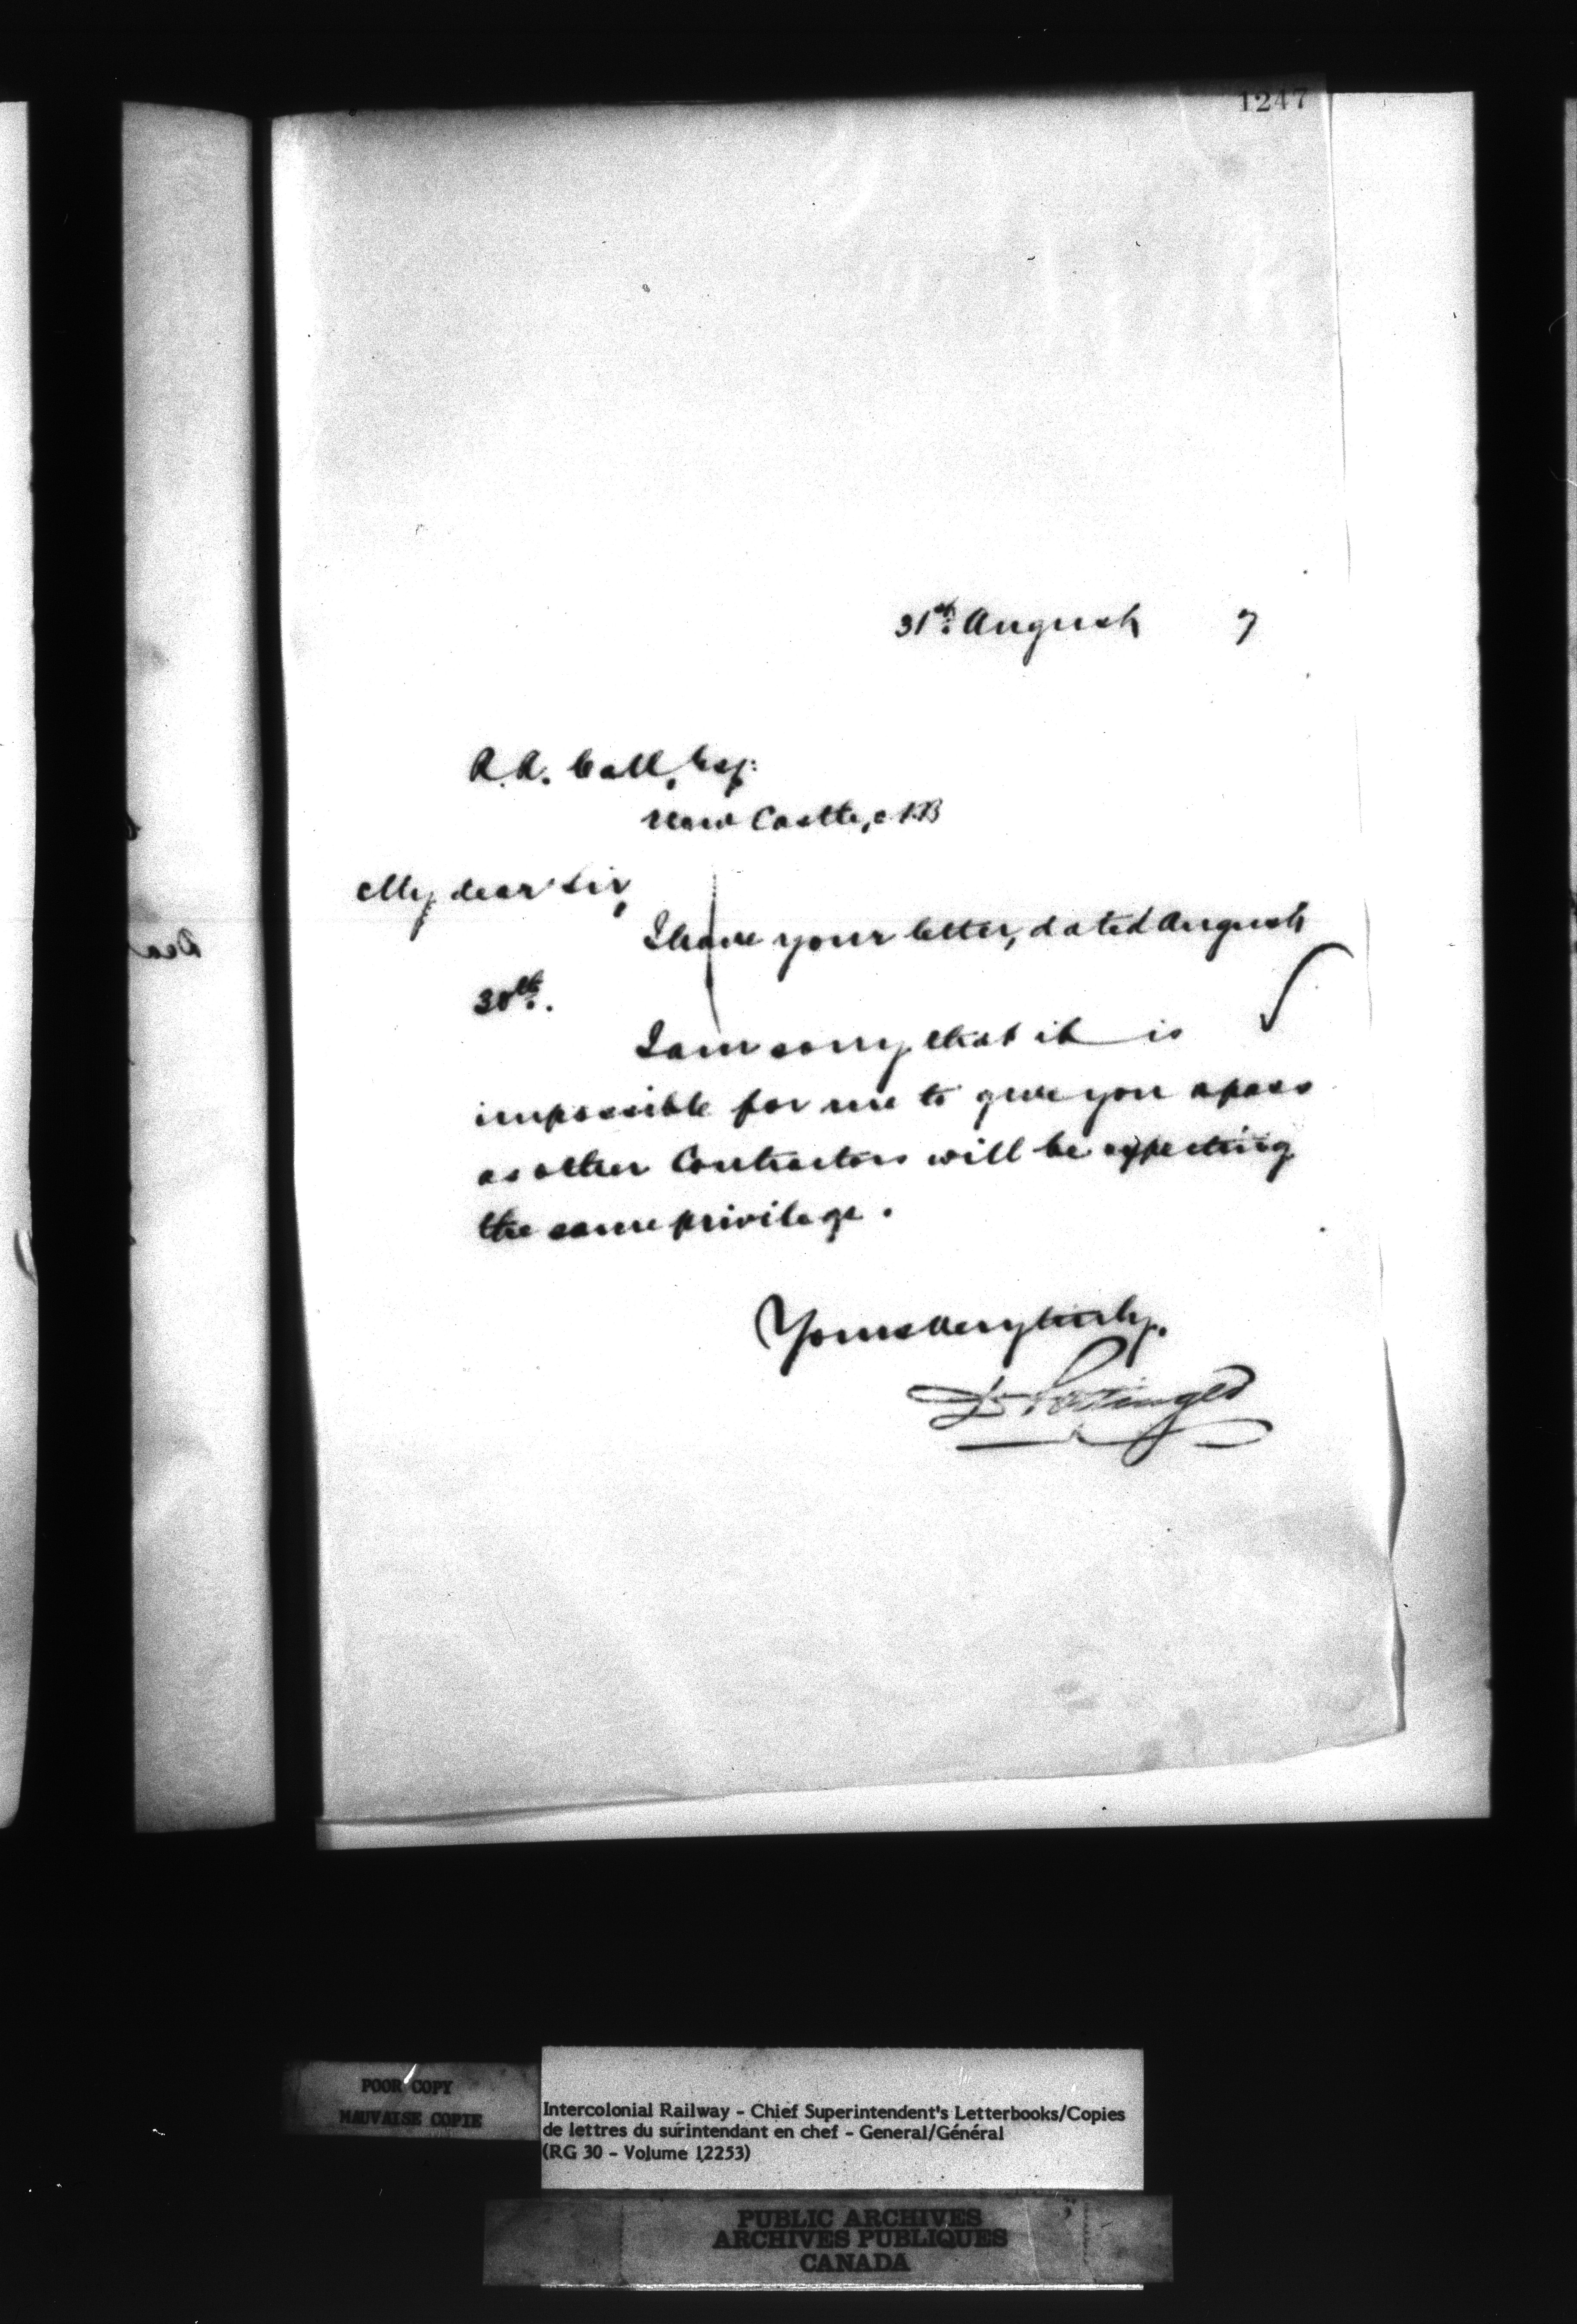 1247
31st. August 7
R. R. Call, Esq:
New Castle, N.B
My dear Sir,
I have your letter, dated August
30th.
I am sorry that it is
impossible for me to give you a pass
as other Contractors will be expecting
the same privilege.
Yours very truly,
D. Pottinger
Dea
POOR COPY
MAUVAISE COPIE
Intercolonial Railway - Chief Superintendent's Letterbooks/Copies
de lettres du surintendant en chef - General/Général
(RG 30 - Volume 12253)
PUBLIC ARCHIVES
ARCHIVES PUBLIQUES
CANADA